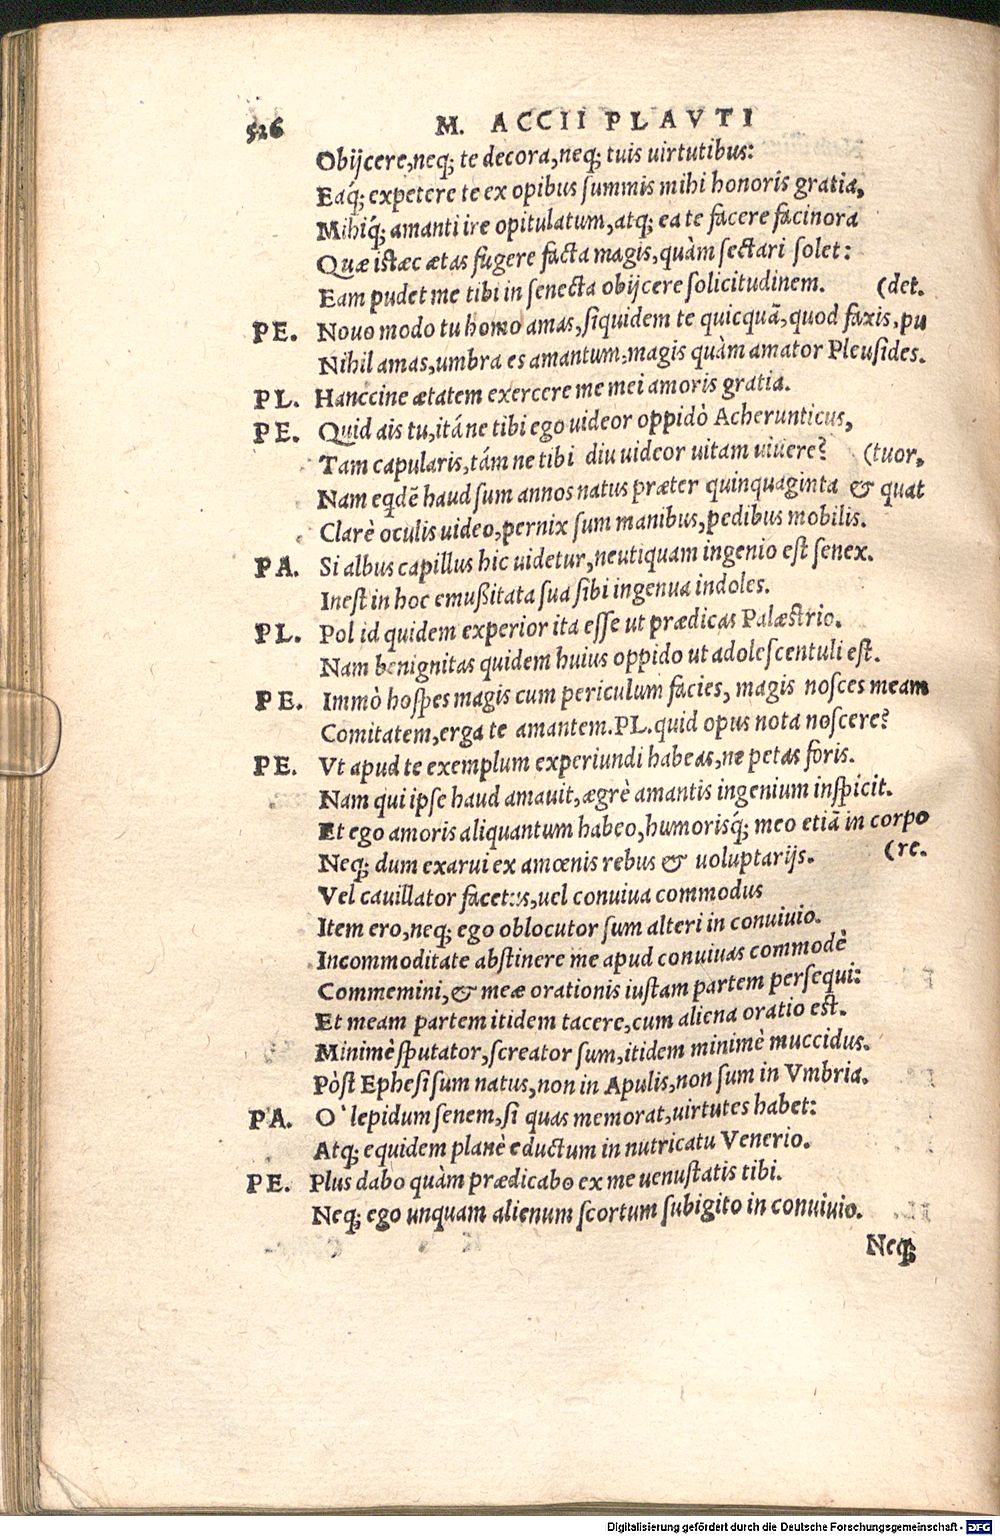 526 M. ACCII PLAVTI
Obijcere, neq; te decora, neq; tuis uirtutibus:
Eáq́; expetere te ex opibus summis mihi honoris gratia,
Mihiq́; amanti ire opitulatum, atq; ea te facere facinora
Quæ istæc ætas fugere facta magis, quàm sectari solet:
Eam pudet me tibi in senecta obijcere solicitudinem. (det.
PE. Nouo modo tu homo amas, siquidem te quicquã, quod faxis, pu
Nihil amas, umbra es amantum, magis quàm amator Pleusides.
PL. Hanccine ætatem exercere me mei amoris gratia.
PE. Quid ais tu, itáne tibi ego uideor oppidò Acherunticus,
Tam capularis, támne tibi diu uideor uitam uiuere? (tuor,
Nam eqdẽ haud sum annos natus præter quinquaginta & quat
Clarè oculis uideo, pernix sum manibus, pedibus mobilis.
PA. Si albus capillus hic uidetur, neutiquam ingenio est senex.
Inest in hoc emußitata sua sibi ingenua indoles.
PL. Pol id quidem experior ita esse ut prædicas Palæstrio.
Nam benignitas quidem huius oppido ut adolescentuli est.
PE. Immò hospes magis cum periculum facies, magis nosces meam
Comitatem, erga te amantem. PL. quid opus nota noscere?
PE. Vt apud te exemplum experiundi habeas, ne petas foris.
Nam qui ipse haud amauit, ægrè amantis ingenium inspicit.
Et ego amoris aliquantum habeo, humorisq́; meo etiã in corpo
Neq; dum exarui ex amœnis rebus & uoluptarijs. (re.
Vel cauillator facetus, uel conuiua commodus
Item ero, neq; ego oblocutor sum alteri in conuiuio.
Incommoditate abstinere me apud conuiuas commodè
Commemini, & meæ orationis iustam partem persequi:
Et meam partem itidem tacere, cum aliena oratio est.
Minimè sputator, screator sum, itidem minimè muccidus.
Pòst Ephesi sum natus, non in Apulis, non sum in Vmbria.
PA. O' lepidum senem, si quas memorat, uirtutes habet:
Atq; equidem planè eductum in nutricatu Venerio.
PE. Plus dabo quàm prædicabo ex me uenustatis tibi.
Neq; ego unquam alienum scortum subigito in conuiuio.
Neq;
Digitalisierung gefördert durch die Deutsche Forschungsgemeinschaft - DFG